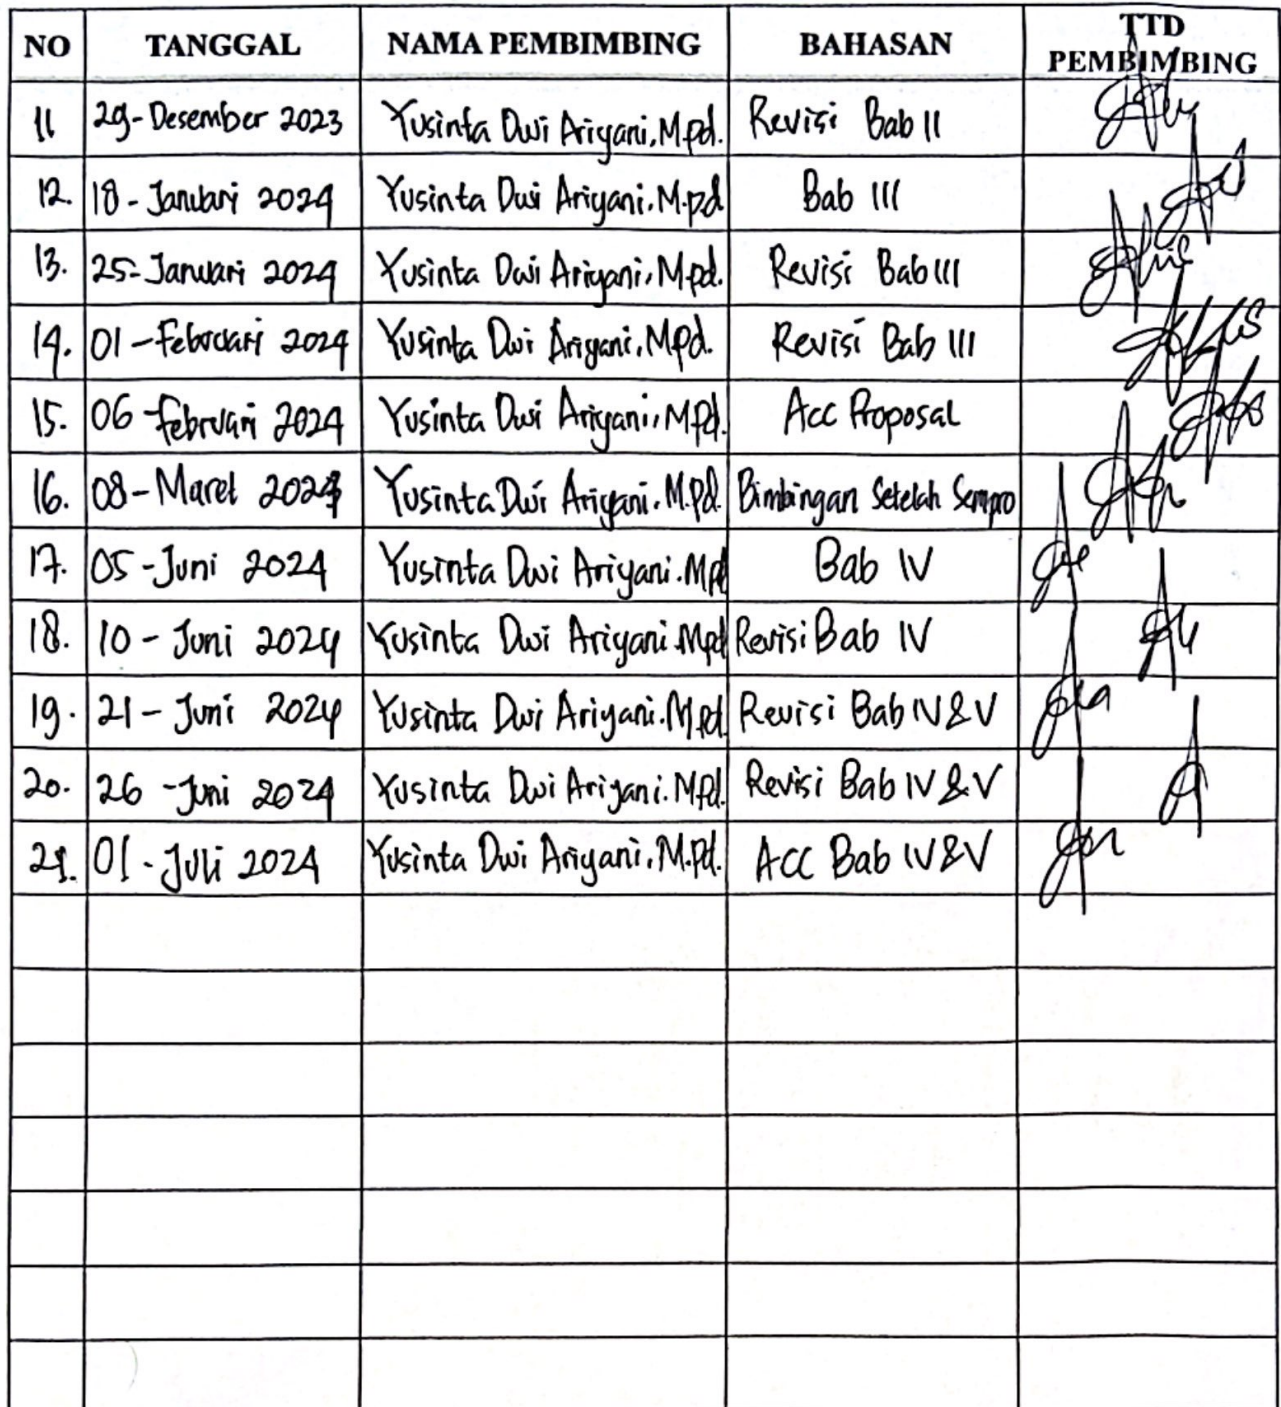 NO TANGGAL NAMA PEMBIMBING BAHASAN TTD PEMBIMBING
11 29-Desember 2023 Yusinta Dwi Ariyani, M.pd. Revisi Bab II
12. 18 - Januari 2024 Yusinta Dwi Ariyani, M.pd Bab III
13. 25-Januari 2024 Yusinta Dwi Ariyani, M.pd. Revisi Bab III
14. 01 - Februari 2024 Yusinta Dwi Ariyani, M.pd. Revisi Bab III
15. 06 Februari 2024 Yusinta Dwi Ariyani, M.pd. Acc Proposal
16. 08 - Maret 2024 Yusinta Dwi Ariyani, M.Pd. Bimbingan Setelah Sempro
17. 05 - Juni 2024 Yusinta Dwi Ariyani. Mpd Bab IV
18. 10 - Juni 2024 Yusinta Dwi Ariyani. Mpd Revisi Bab IV
19. 21 - Juni 2024 Yusinta Dwi Ariyani. M.pd. Revisi Bab IV & V
20. 26 - Juni 2024 Yusinta Dwi Ariyani. M.Pd. Revisi Bab IV & V
21. 01 - Juli 2024 Yusinta Dwi Ariyani, M.Pd. ACC Bab IV & V